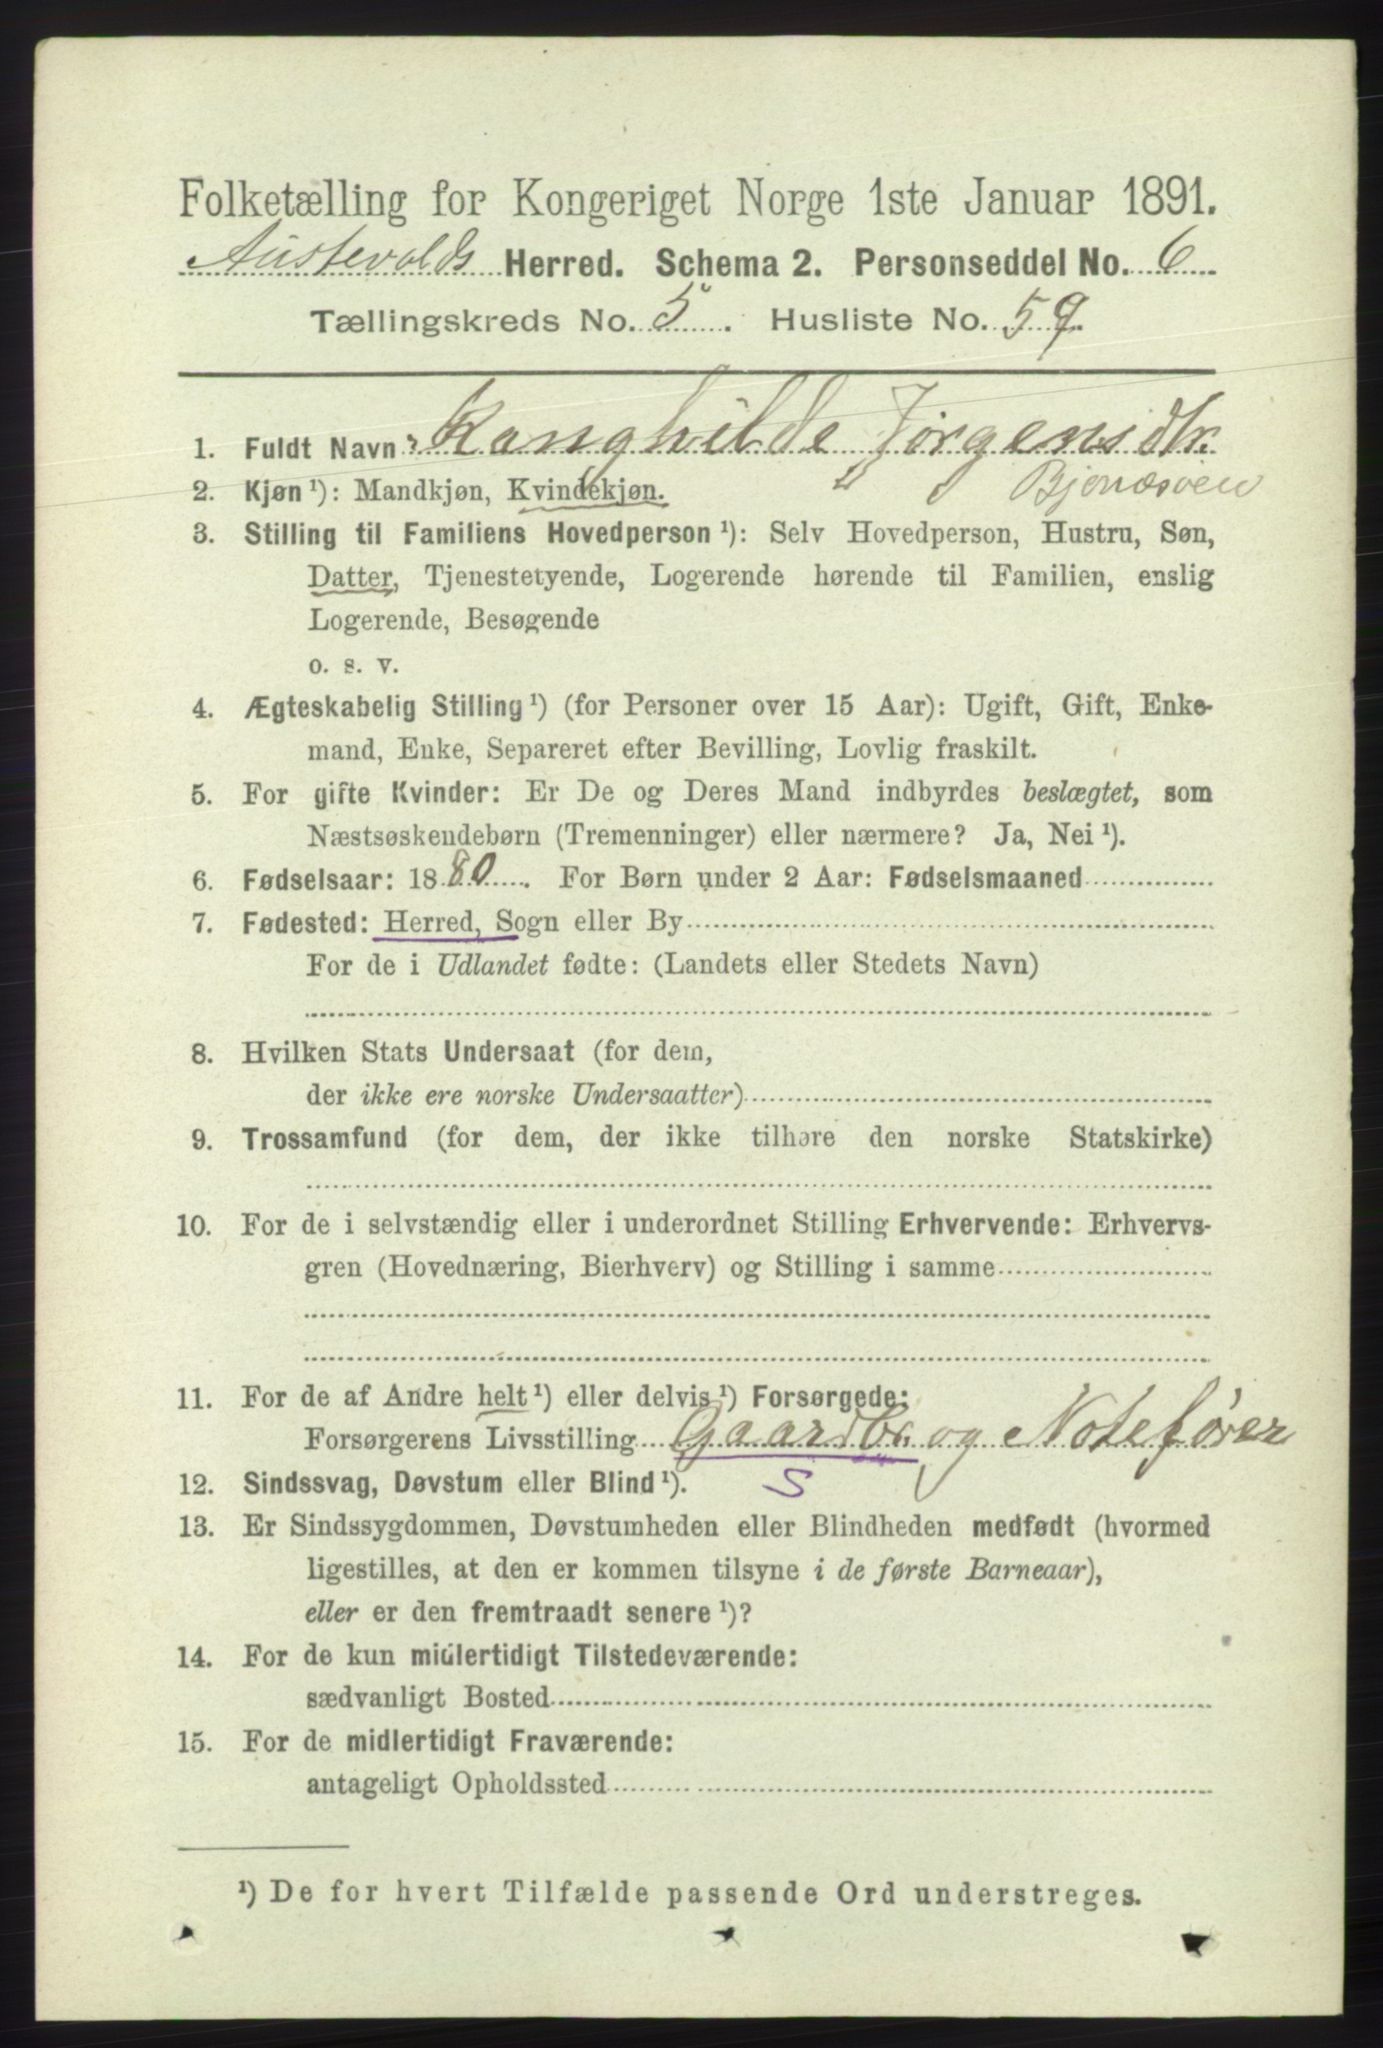 Folketælling for Kongeriget Norge 1ste Januar 1891.
Austevolds Herred. Schema 2. Personseddel No. 6
Tællingskreds No. 5. Husliste No. 59.
1. Fuldt Navn: Ranghilde Jørgensdtr.
2. Kjøn¹): Mandkjøn, Kvindekjøn.
3. Stilling til Familiens Hovedperson¹): Selv Hovedperson, Hustru, Søn,
Datter, Tjenestetyende, Logerende hørende til Familien, enslig
Logerende, Besøgende
o. s. v.
4. Ægteskabelig Stilling¹) (for Personer over 15 Aar): Ugift, Gift, Enke-
mand, Enke, Separeret efter Bevilling, Lovlig fraskilt.
5. For gifte Kvinder: Er De og Deres Mand indbyrdes beslægtet, som
Næstsøskendebørn (Tremenninger) eller nærmere? Ja, Nei¹).
6. Fødselsaar: 1880. For Børn under 2 Aar: Fødselsmaaned
7. Fødested: Herred, Sogn eller By
For de i Udlandet fødte: (Landets eller Stedets Navn)
8. Hvilken Stats Undersaat (for dem,
der ikke ere norske Undersaatter)
9. Trossamfund (for dem, der ikke tilhøre den norske Statskirke)
10. For de i selvstændig eller i underordnet Stilling Erhvervende: Erhvervs-
gren (Hovednæring, Bierhverv) og Stilling i samme
11. For de af Andre helt¹) eller delvis¹) Forsørgede:
Forsørgerens Livsstilling Gaardbr. og Notefører
12. Sindssvag, Døvstum eller Blind¹). S
13. Er Sindssygdommen, Døvstumheden eller Blindheden medfødt (hvormed
ligestilles, at den er kommen tilsyne i de første Barneaar),
eller er den fremtraadt senere¹)?
14. For de kun midlertidigt Tilstedeværende:
sædvanligt Bosted
15. For de midlertidigt Fraværende:
antageligt Opholdssted
¹) De for hvert Tilfælde passende Ord understreges.